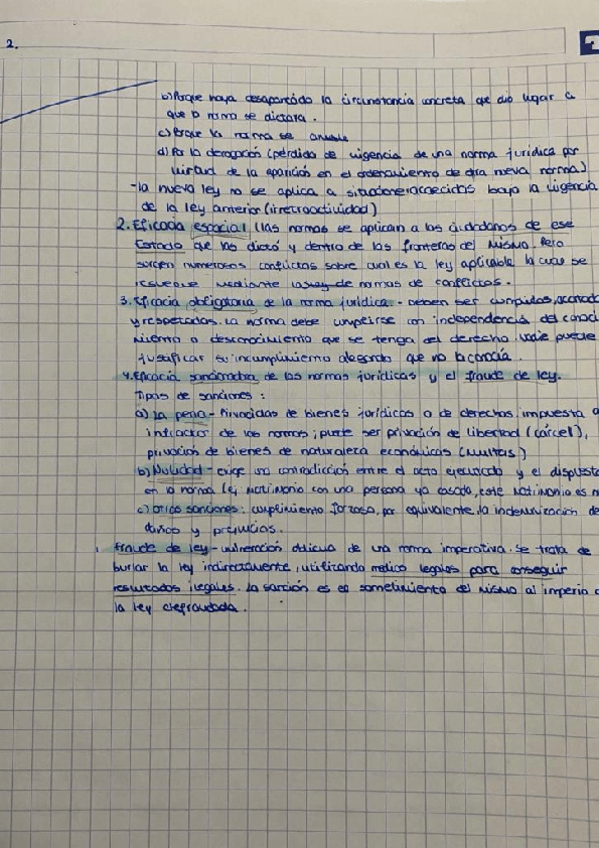 2.
b) Porque haya desaparecido la circunstancia concreta que dio lugar a
que la norma se dictara.
c) Porque la norma se anule
d) Por la derogación (pérdida de vigencia de una norma jurídica por
virtud de la aparición en el ordenamiento de otra nueva norma)
-la nueva ley no se aplica a situaciones acaecidas bajo la vigencia
de la ley anterior (irretroactividad)
2. Eficacia espacial (las normas se aplican a los ciudadanos de ese
Estado que las dictó y dentro de las fronteras del mismo. Pero
surgen numerosos conflictos sobre cual es la ley aplicable la cual se
resuelve mediante de normas de conflictos.
3. Eficacia obligatoria de la norma jurídica - Deben ser cumplidas,
y respetadas. La norma debe cumplirse con independencia del
o desconocimiento que se tenga del derecho. Nadie puede
justificar su incumplimiento alegando que no la conocía.
4. Eficacia sancionadora de las normas jurídicas y el fraude de ley.
Tipos de sanciones :
a) La pena - Privacidas de bienes jurídicos o de derechos impuesta
infractor de las normas; puede ser privación de libertad (cárcel),
privación de bienes de naturaleza económicas (multas)
b) Nulidad - exige una contradicción entre el acto ejecutado y el
en la norma (ej matrimonio con una persona ya casada, este matrimonio es
c) Otras sanciones: cumplimiento forzoso, por equivalente, la indemnización de
daños y prejuicios.
Fraude de ley - vulneración oblicua de una norma imperativa. Se trata de
burlar la ley indirectamente, utilizando medios legales para conseguir
resultados ilegales. La sanción es el sometimiento del mismo al imperio
la ley defraudada.